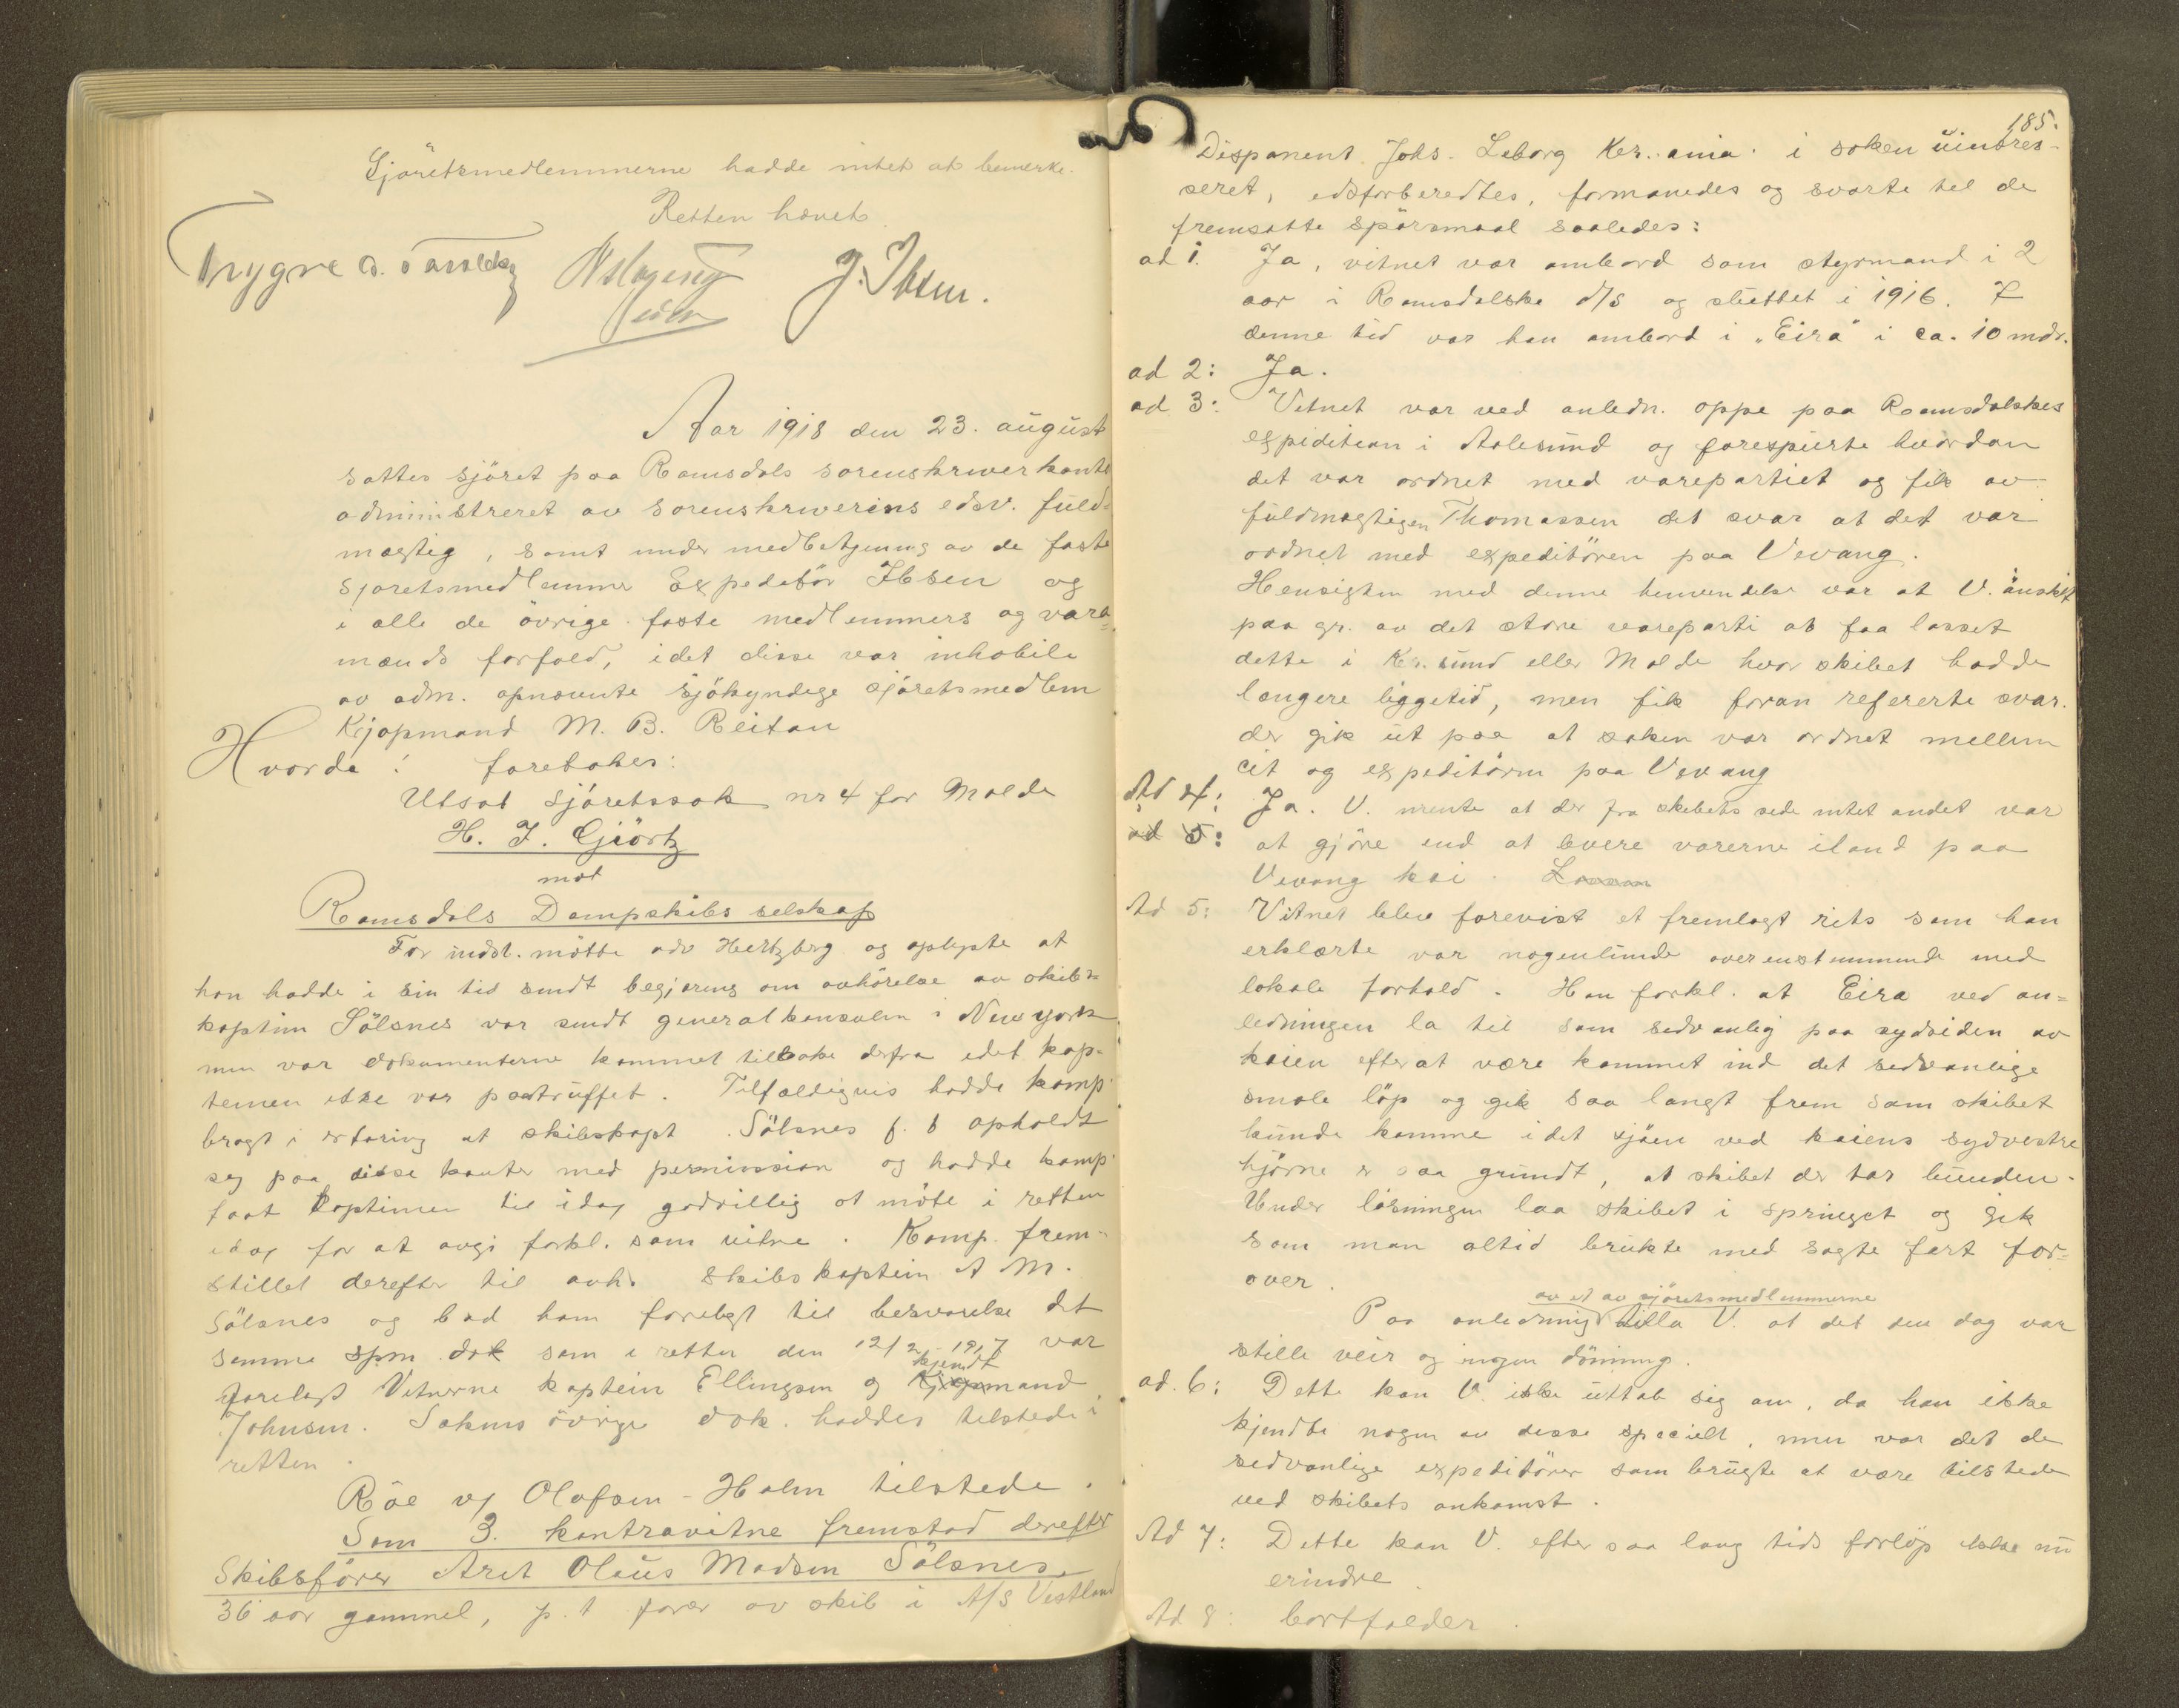 Sjöretsmedlemmerne hadde intet at bemerke.
Retten hævet
J. Ibsen.
Aar 1918 den 23. august
sattes sjöret paa Romsdals sorenskriverkonto
administreret av sorenskriverens edsv. fuld-
mægtig, samt under medbetjening av de faste
sjöretsmedlemmer Expeditör Ibsen og
i alle de övrige faste medlemmers og vara-
mænds forfald, idet disse var inhabile
av adm. opnævnte sjökyndige sjöretsmedlem
Kjøpmand M. B. Reitan
Hvorda: foretokes:
Utsat sjöretssak nr 4 for Molde
H. J. Gjörtz
mot
Romsdals Dampskibsselskap
For indst. mötte adv Hertzberg og oplyste at
han hadde i sin tid sendt begjæring om avhörelse av skibs-
kaptein Sölsnes var sendt generalkonsulen i New york
men var dokumenterne kommet tilbake derfra idet kap-
teinen ikke var paatruffet. Tilfældigvis hadde komp.
bragt i erfaring at skibskapt. Sölsnes f. t opholdt
seg paa disse kanter med permission og hadde komp.
faat kapteinen til idag godvillig at möte i retten
idag for at avgi forkl. som vitne. Komp. frem-
stillet derefter til avh. skibskaptein A M.
Sölsnes og bad ham forelagt til besvarelse det
samme spm. dok som i retten den 12/2 1917 var
forelagt Vitnerne kaptein Ellingsen og kjendtmand
Johnsen. Sakens övrige dok. haddes tilstede i
retten.
Röe og Olafsen-Holm tilstede.
Som 3. kontravitne fremstod derefter
Skibsförer Aret Olaus Madsen Sölsnes,
36 aar gammel, p. t förer av skib i A/S Vestland
185.
Disponent Johs. Leborg Kr.ania. i saken uintres-
seret, edsforberedtes, formanedes og svarte til de
fremsatte spörsmaal saaledes:
ad 1. Ja, vitnet var ombord som styrmand i 2
aar i Romsdalske d/s og sluttet i 1916. I
denne tid var han ombord i "Eira" i ca. 10 mdr.
ad 2: Ja.
ad 3: Vitnet var ved anledn. oppe paa Romsdalskes
expedition i Aalesund og forespurte hvordan
det var ordnet med varepartiet og fik av
fuldmægtigen Thomassen det svar at det var
ordnet med expeditören paa Vevang.
Hensigten med denne henvendelse var at V. önsket
paa gr. av det store vareparti at faa losset
dette i Kr.sund eller Molde hvor skibet hadde
længere liggetid, men fik foran refererte svar.
der gik ut paa at saken var ordnet mellem
cit og expeditören paa Vevang
Ad 4: Ja. V. mente at der fra skibets side intet andet var
ad 5: at gjöre end at levere varerne iland paa
Vevang kai.
Ad 5: Vitnet blev forevist et fremlagt rits som han
erklærte var nogenlunde overenstemmende med
lokale forhold. Han forkl. at Eira ved an-
ledningen la til som sedvanlig paa sydsiden av
kaien efter at være kommet ind det sedvanlige
smale löp og gik saa langt frem som skibet
kunde komme idet sjöen ved kaiens sydvestre
hjörne er saa grundt, at skibet der tar bunden.
Under lösningen laa skibet i springet og gik
som man altid brukte med sagte fart for-
over.
av et av sjöretsmedlemmerne
Paa anledning tilla V. at det den dag var
stille veir og ingen dönning.
ad. 6: Dette kan V. ikke uttale sig om, da han ikke
kjendte nogen av disse specielt, men var det de
sedvanlige expeditörer som brugte at være tilstede
ved skibets ankomst.
Ad 7: Dette kan V. efter saa lang tids forlöp ikke nu
erindre.
Ad 8: bortfalder.